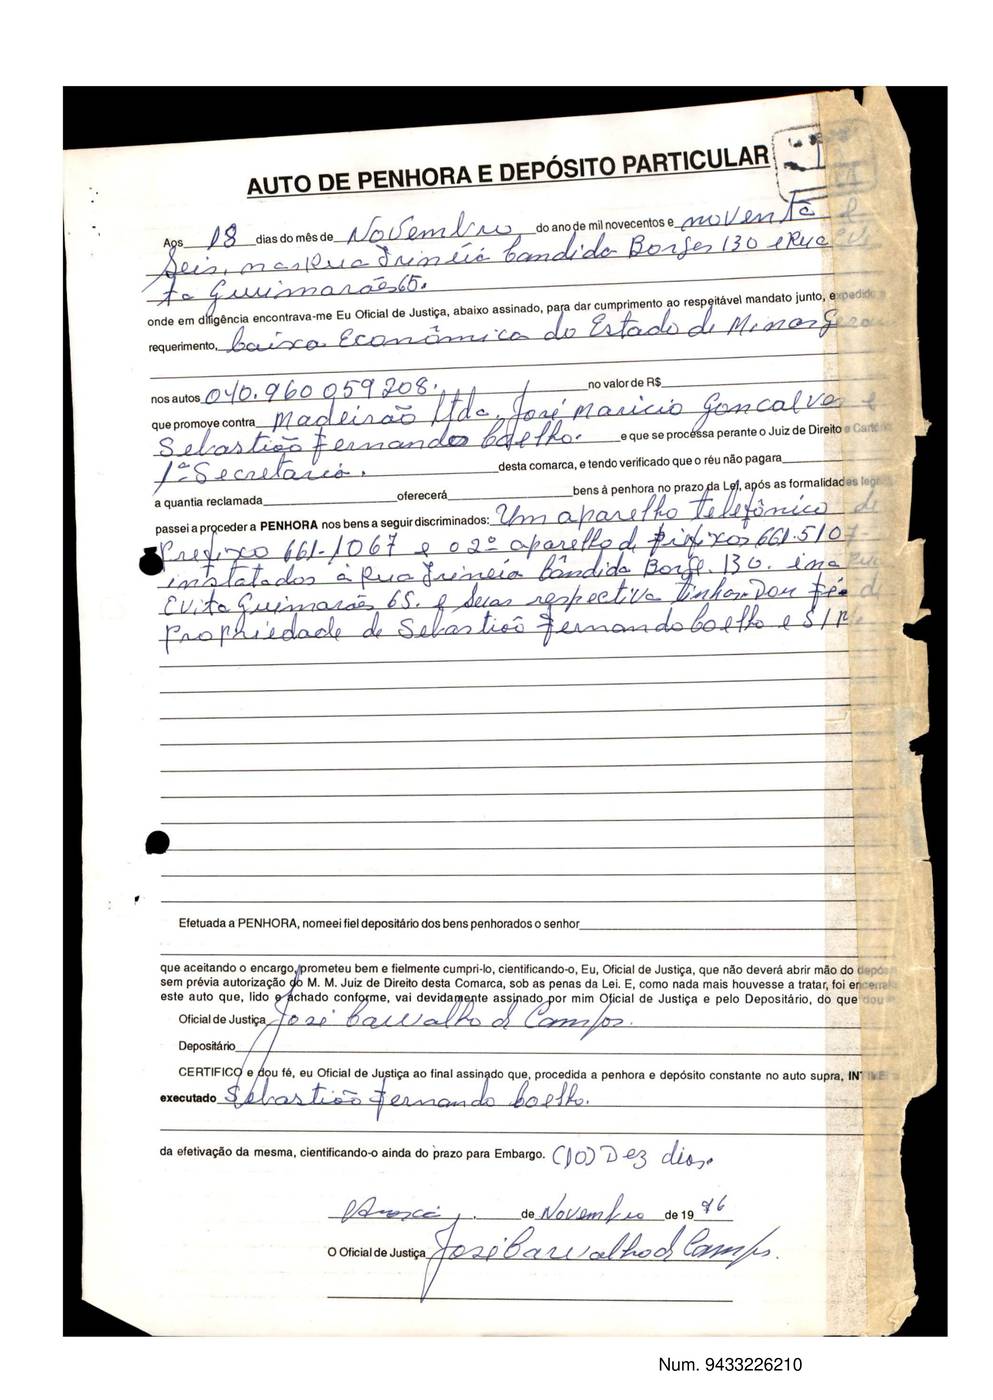 AUTO DE PENHORA E DEPÓSITO PARTICULAR
Aos 18 dias do mês de Novembro do ano de mil novecentos e noventa e
Seis, nas Rua Irineia Candida Borges 130 e Rua Evi
ta Guimarães 65.
onde em diligência encontrava-me Eu Oficial de Justiça, abaixo assinado, para dar cumprimento ao respeitável mandato junto, expedido a
requerimento, Caixa Econômica do Estado de Minas Gerais
nos autos 040.960 059208. no valor de R$
que promove contra Madeirão Ltda, José Maricio Goncalves e
Sebastião Fernando Coelho. e que se processa perante o Juiz de Direito e Cartório
1ª Secretaria. desta comarca, e tendo verificado que o réu não pagara
a quantia reclamada oferecerá bens à penhora no prazo da Lei, após as formalidades legais
passei a proceder a PENHORA nos bens a seguir discriminados: Um aparelho telefônico de
Prefixo 661-1067 e o 2º aparelho de prefixos 661-5107-
instalados à Rua Irineia Cândida Borge. 130. e na Rua
Evita Guimarães 65. e suas respectiva linhas. Dou fé de
propriedade de Sebastião Fernando Coelho e S/M
Efetuada a PENHORA, nomeei fiel depositário dos bens penhorados o senhor
que aceitando o encargo, prometeu bem e fielmente cumpri-lo, cientificando-o, Eu, Oficial de Justiça, que não deverá abrir mão do depós
sem prévia autorização do M. M. Juiz de Direito desta Comarca, sob as penas da Lei. E, como nada mais houvesse a tratar, foi encerra
este auto que, lido e achado conforme, vai devidamente assinado por mim Oficial de Justiça e pelo Depositário, do que dou
Oficial de Justiça José Carvalho de Campos.
Depositário
CERTIFICO e dou fé, eu Oficial de Justiça ao final assinado que, procedida a penhora e depósito constante no auto supra, INTIMEI
executado Sebastião Fernando Coelho.
da efetivação da mesma, cientificando-o ainda do prazo para Embargo. (10) Dez dias.
de Novembro de 19 96
O Oficial de Justiça José Carvalho de Campos.
Num. 9433226210